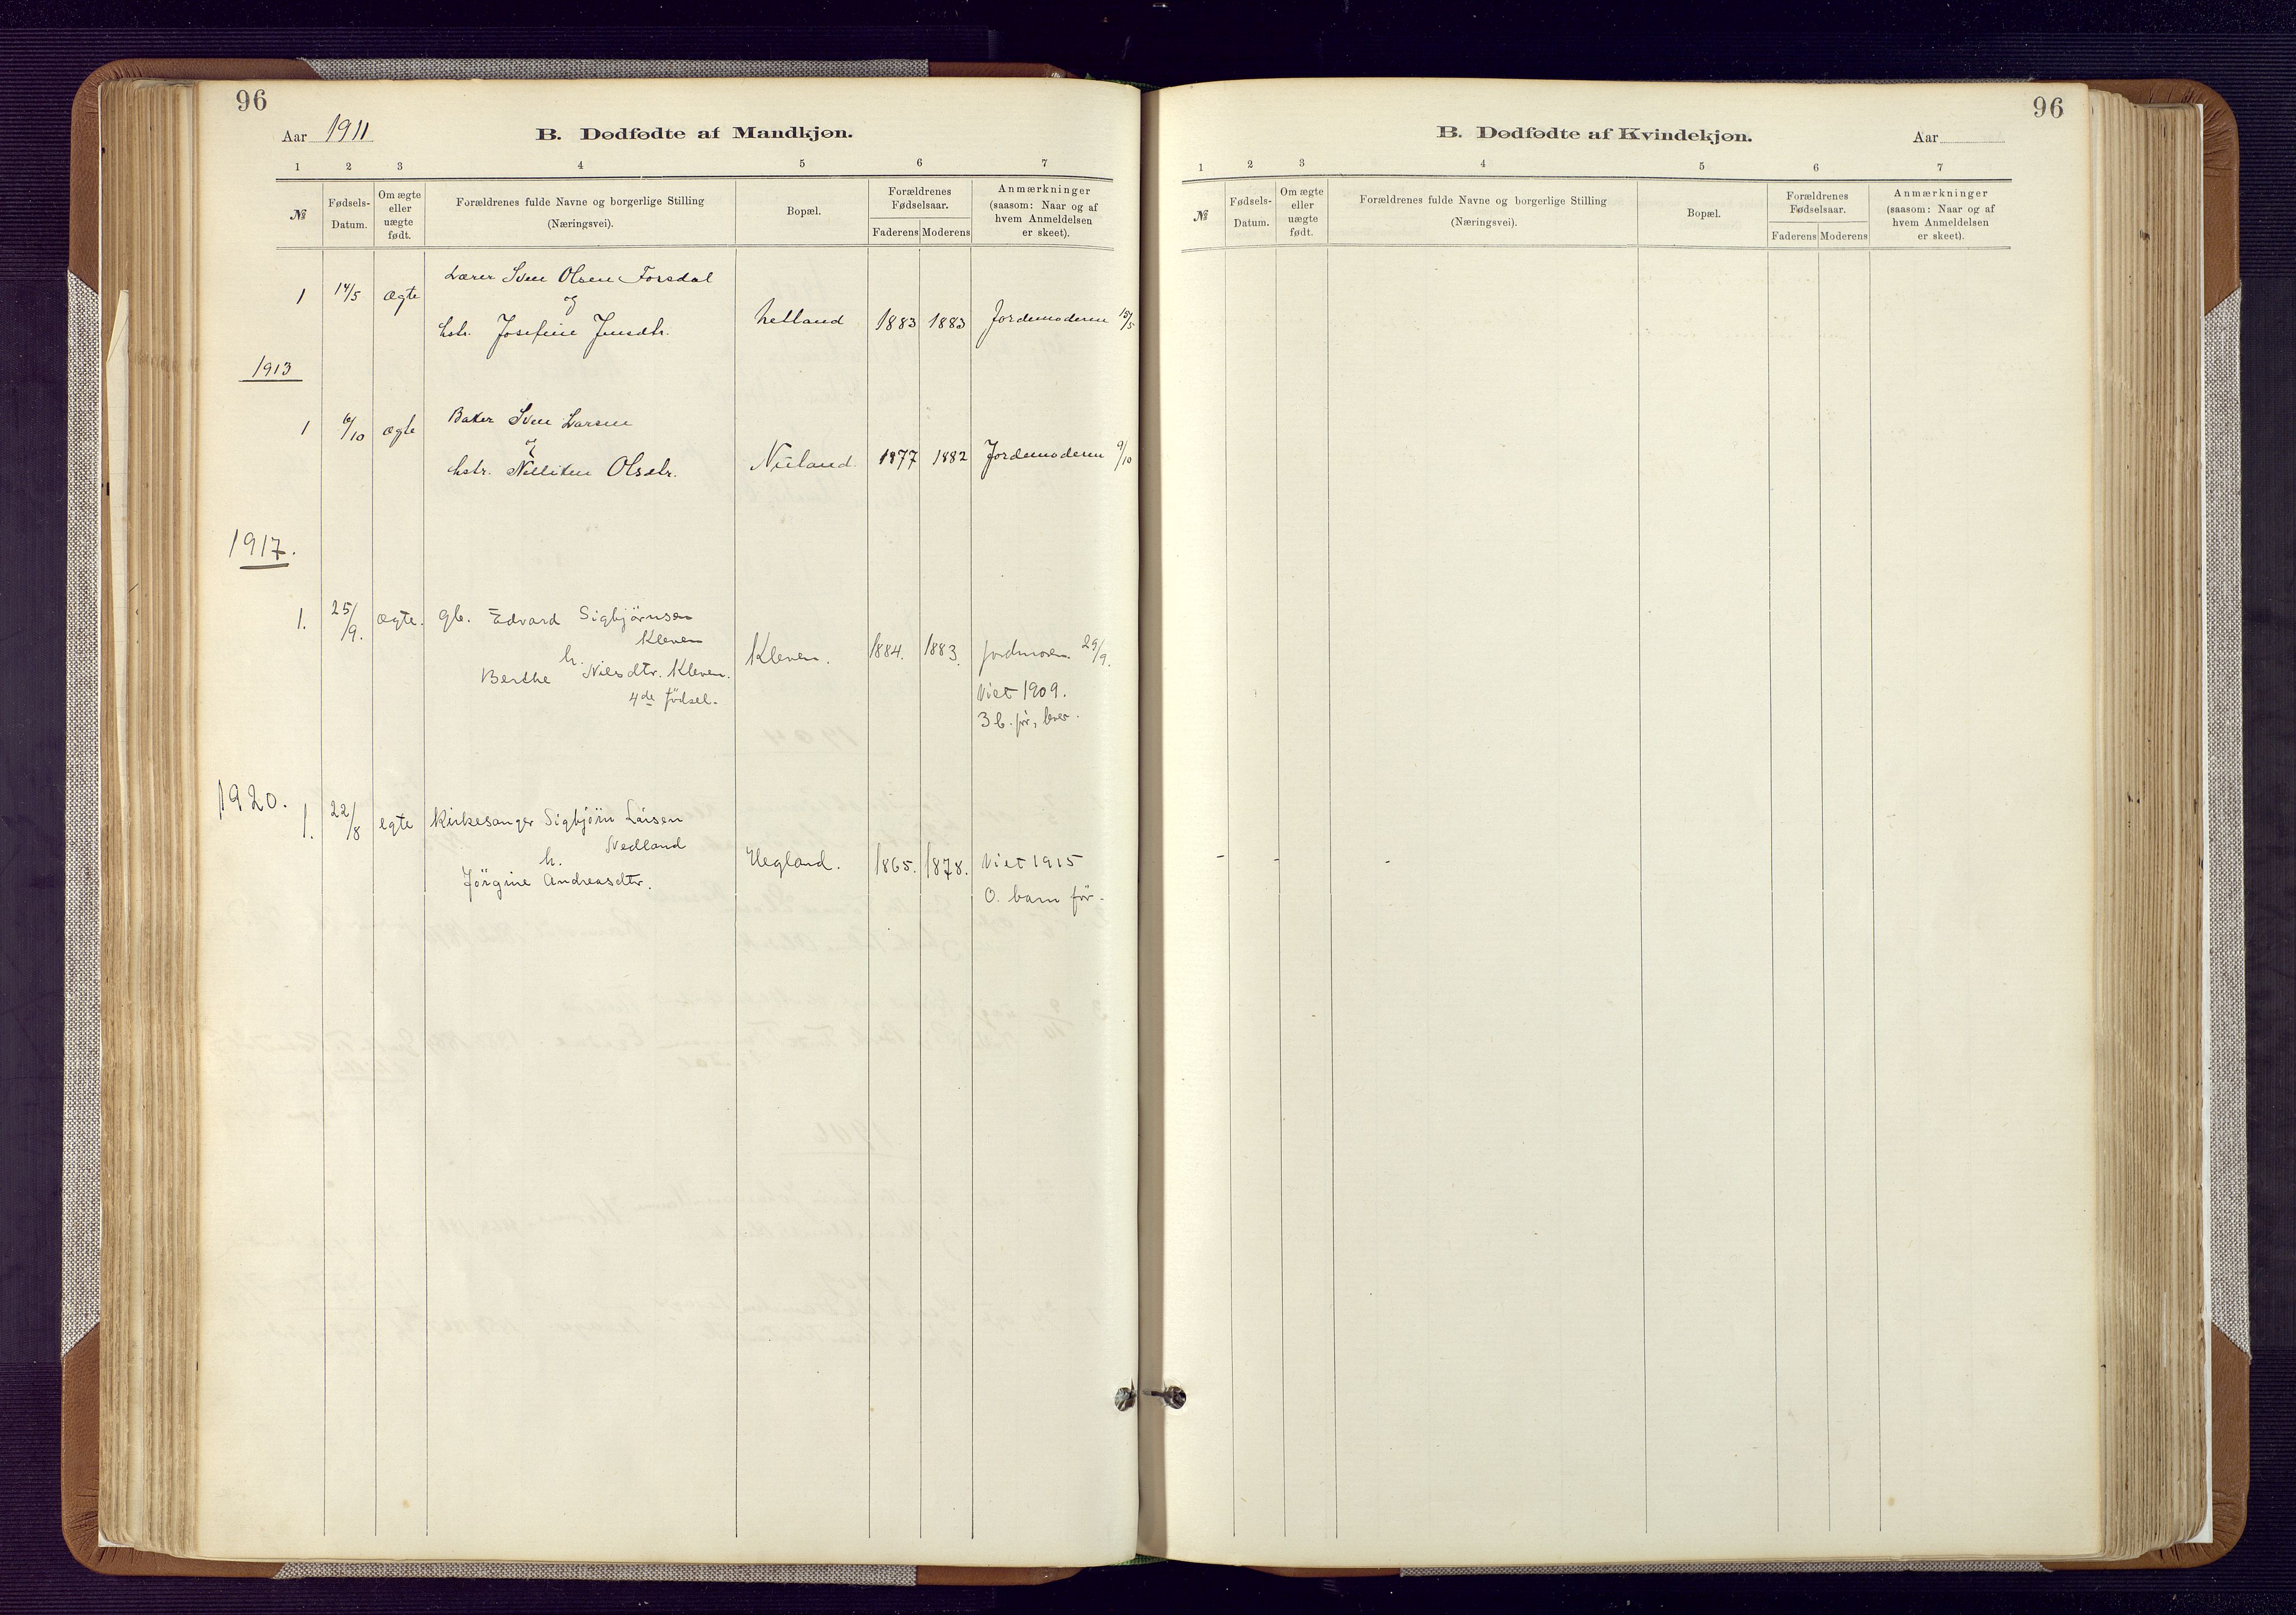 96
Aar 1911
B. Dødfødte af Mandkjøn.
1 2 3 4 5 6 7
№
Fødsels-
Datum.
Om ægte
eller
uægte
født.
Forældrenes fulde Navne og borgerlige Stilling
(Næringsvei).
Bopæl.
Forældrenes
Fødselsaar.
Faderens Moderens
Anmærkninger
(saasom: Naar og af
hvem Anmeldelsen
er skeet).
Lærer Sven Olsen Forsdal
1 14/5 ægte og
Helland 1883 1883 Jordemoderen 15/5
hstr. Josefine Jensdtr.
1913
Baker Sven Larsen
1 6/10 ægte og
Nuland 1877 1882 Jordemoderen 9/10
hstr. Olsdtr.
1917.
1. 25/9. ægte. gb. Edvard Sigbjörnsen
Kleven
h. Kleven. 1884. 1883. jordmoren 29/9.
Berthe Nilsdtr. Kleven.
4de födsel.
Viet 1909.
3 b. för, lever.
1920.
1. 22/8 egte Kirkesanger Sigbjörn Larsen
Nedland
h. Uegland. 1865. 1878. Viet 1915
Jörgine Andreasdtr.
0. barn för.
96
B. Dødfødte af Kvindekjøn.
Aar
1 2 3 4 5 6 7
№
Fødsels-
Datum.
Om ægte
eller
uægte
født.
Forældrenes fulde Navne og borgerlige Stilling
(Næringsvei).
Bopæl.
Forældrenes
Fødselsaar.
Faderens Moderens
Anmærkninger
(saasom: Naar og af
hvem Anmeldelsen
er skeet).
- - -